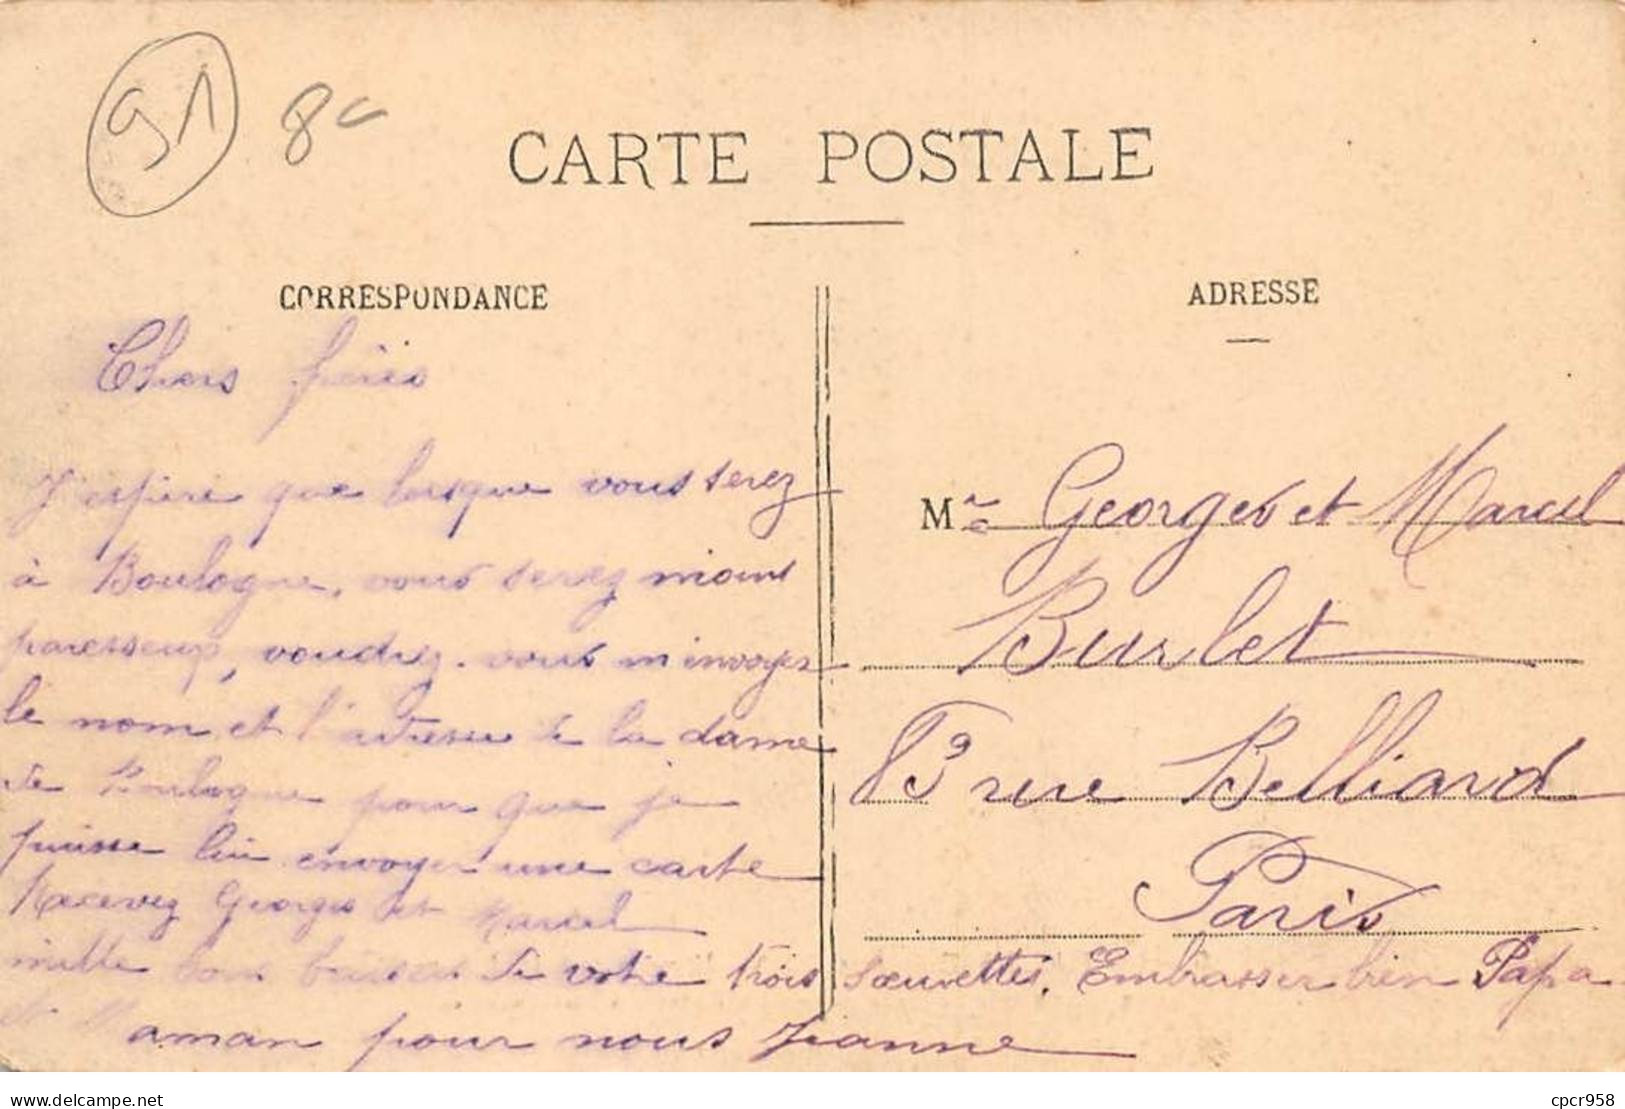 91 8€
CARTE POSTALE
CORRESPONDANCE
Chers frères
J'espère que lorsque vous serez
à Boulogne, vous serez moins
paresseux, voudrez-vous m'envoyer
le nom et l'adresse de la dame
de Boulogne pour que je
puisse lui envoyer une carte
Recevez Georges et Marcel
mille bons baisers de votre trois soeurettes. Embrasser bien Papa
et Maman pour nous Jeanne
ADRESSE
M Georges et Marcel
Burlet
rue Belliard
Paris
delcampe.net
cpcr958